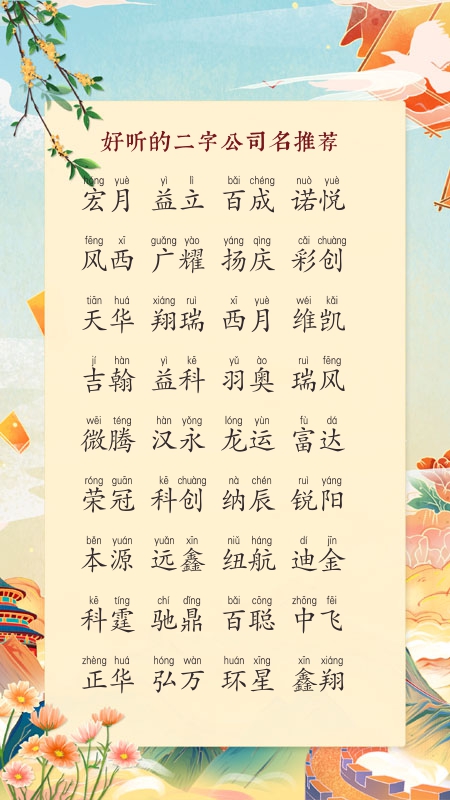 好听的二字公司名推荐
hóng yuè yì lì bǎi chéng nuò yuè
宏月 益立 百成 诺悦
fēng xī guǎng yào yáng qìng cǎi chuàng
风西 广耀 扬庆 彩创
tiān huá xiáng ruì xī yuè wéi kǎi
天华 翔瑞 西月 维凯
jí hàn yì kē yǔ ào ruì fēng
吉翰 益科 羽奥 瑞风
wēi téng hàn yǒng lóng yùn fù dá
微腾 汉永 龙运 富达
róng guān kē chuàng nà chén ruì yáng
荣冠 科创 纳辰 锐阳
běn yuán yuǎn xīn niǔ háng dí jīn
本源 远鑫 纽航 迪金
kē tíng chí dǐng bǎi cōng zhōng fēi
科霆 驰鼎 百聪 中飞
zhèng huá hóng wàn huán xīng xīn xiáng
正华 弘万 环星 鑫翔